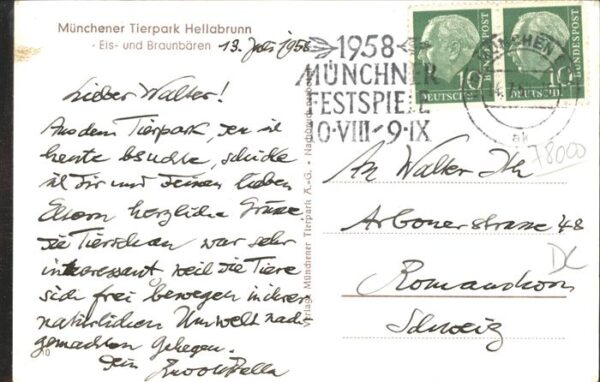 Münchener Tierpark Hellabrunn
- Eis- und Braunbären
13. Juli 1958
Lieber Walter!
Aus dem Tierpark, den ich
heute besuchte, schicke
ich Dir und Deinen lieben
Eltern herzliche Grüsse.
Die Tierschau war sehr
interessant weil die Tiere
sich frei bewegen in ihrer
natürlichen Umwelt nach-
gemachten Gehegen.
Dein
10
Verlag: Münchener Tierpark A.-G.
1958
MÜNCHNER
FESTSPIELE
10·VIII-9·IX
10
DEUTSCHE
BUNDESPOST
10
DEUTSCHE
BUNDESPOST
MÜNCHEN
ak
78000
An Walter
Arbonerstrasse 48
Romanshorn
Schweiz